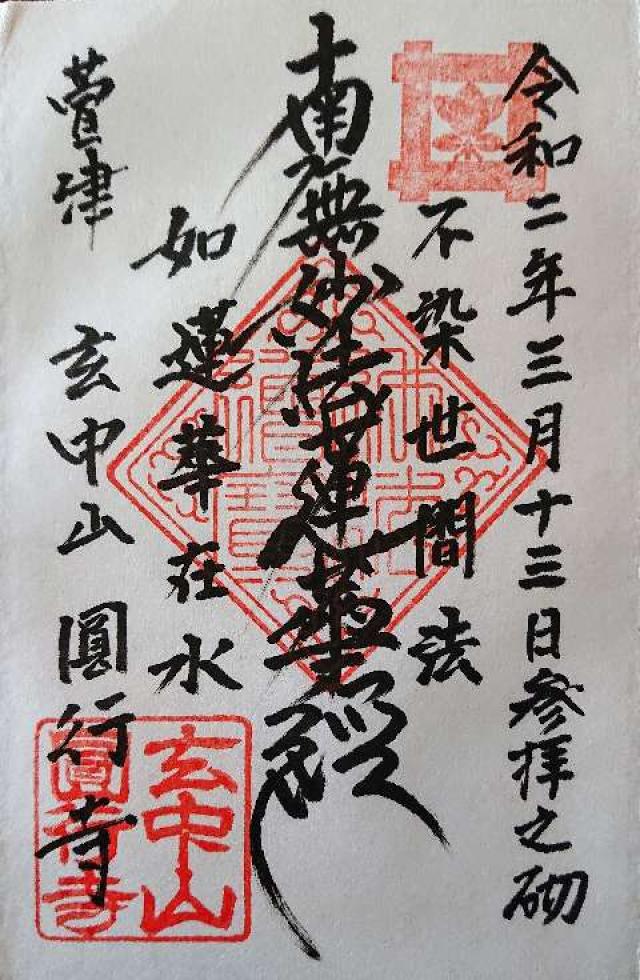 令和二年三月十三日参拝之砌
不染世間法
南無妙法蓮華経
如蓮華在水
萱津
玄中山
圓行寺
玄中山
圓行寺